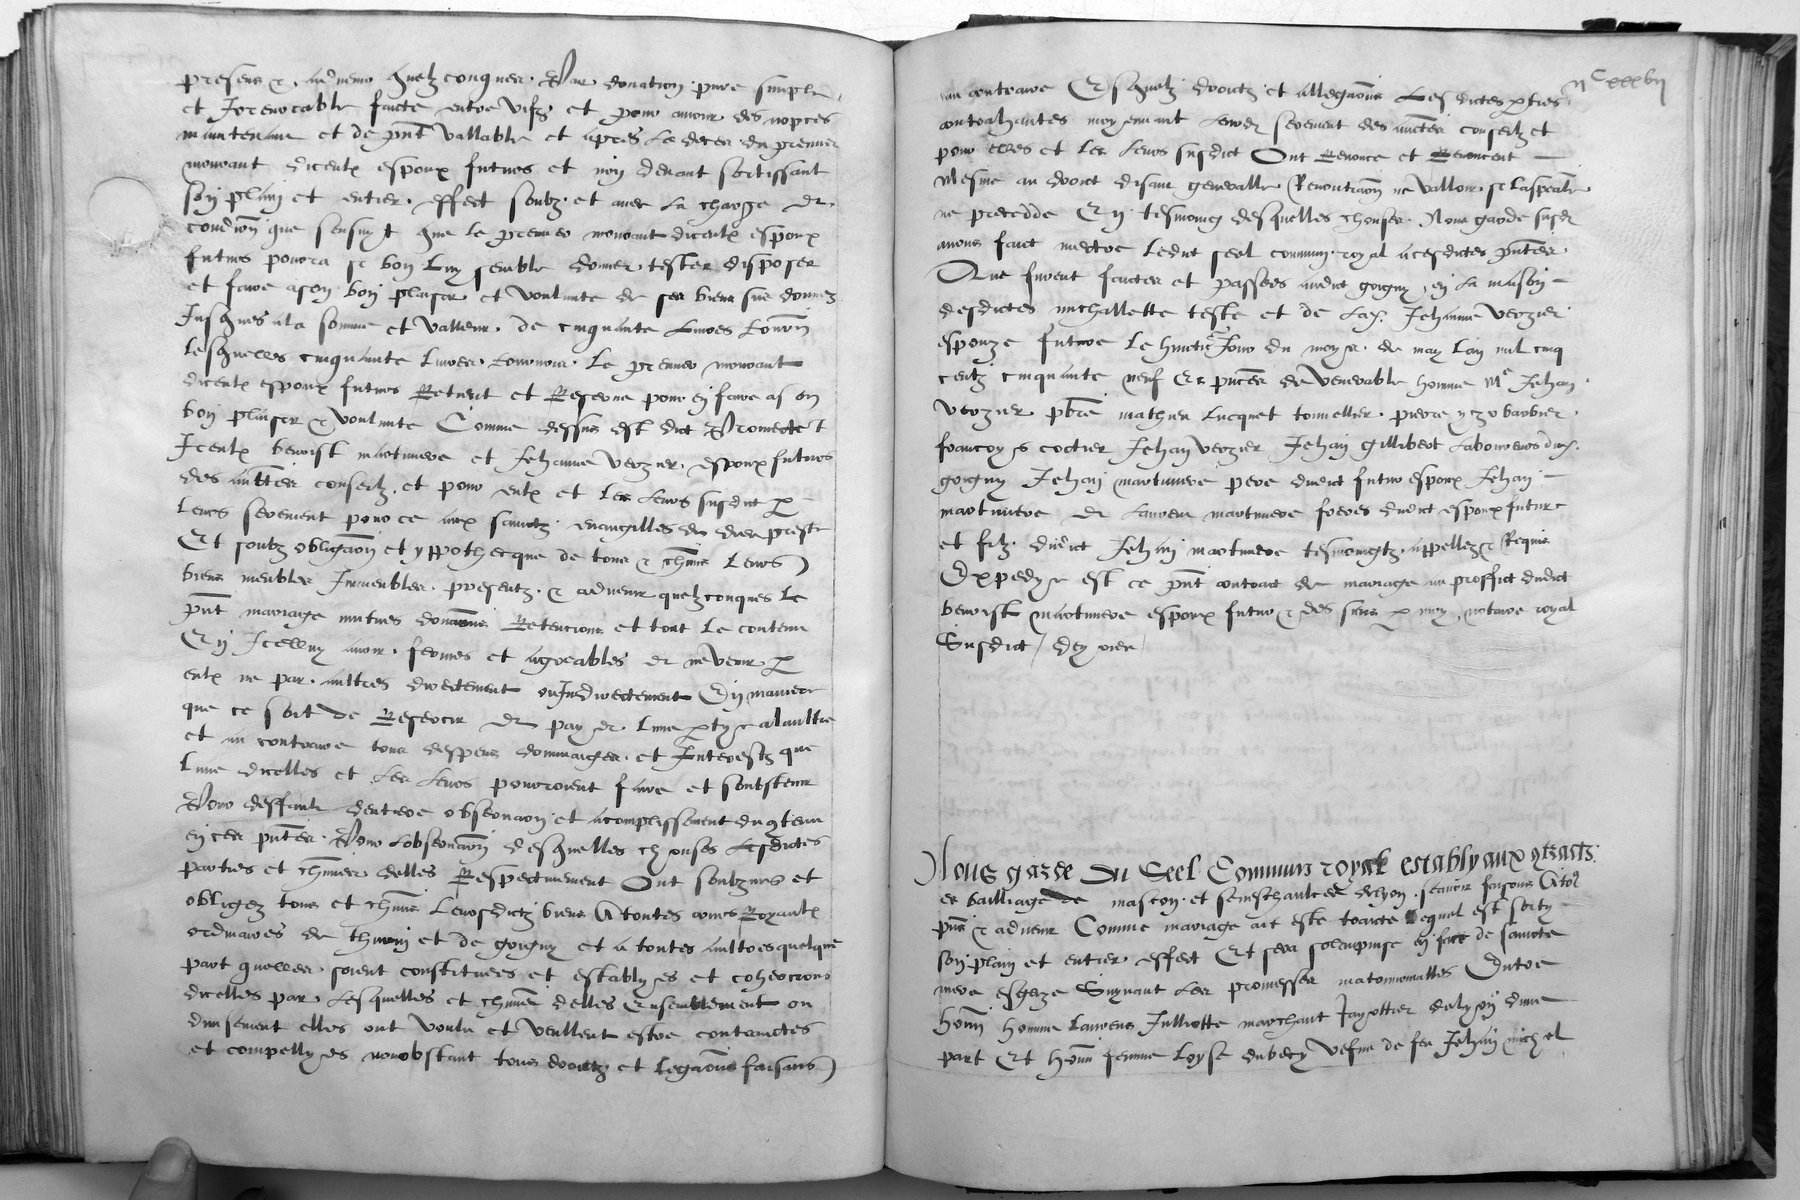 presens & advenir quelzconques Par donation pure simple
et Irrevocable faicte entre vifz et pour amour des nopces
maintenant et de pnt vallable et apres le deces du premier
mourant diceulx espoux futurs et non devant sortissant
son plain et entier effect soubz et avec la charge &
condicion que sensuyt que le premier mourant diceulx espoux
futurs pourra se bon luy semble donner tester disposer
et faire a son bon plaisir et voulunte de ses biens sus donnez
Jusques a la somme et valleur de cinquante livres tourn
lesquelles cinquante livres tournois le premier mourant
diceulx espoux futurs Retient et Reserve pour en faire a son
bon plaisir & voulunte Comme dessus est dict Promectent
Iceulx benoist martinere et Jehanne verzier espoux futurs
des auctez conseilz et pour eulx et les leurs susdict p
leurs serement pour ce aux sainctz evangilles de dieu preste
Et soubz obligaon et yppothecque de tous & chuns leurs
biens meubles Immeubles presentz & advenir quelzconques le
pnt mariage mutues donaons Retencions et tout le contenu
En Icelluy avoir fermes et agreables & ne venir p
eulx ne par aultres directement ou Indirectement En maniere
que ce soit de Reffercir & payer lune ptye a laultre
et au contraire tous despens dommaiges et Interestz que
lune dicelles et les leurs pourroient faire et soubstenir
Pour deffault dentiere observaon et acomplissement du 9tenu
en ces pntes Pour lobservaon desquelles choses lesdictes
parties et chune delles Respectivement Ont soubzmis et
obligez tous et chuns leursdictz biens A toutes cours Royaulx
ordinaires de thurin et de goigny et a toutes aultres quelque
part quelles soient constituees et establyes et cohercions
dicelles par lesquelles et chune delles Ensemblement ou
divisement elles ont voulu et veullent estre contrainctes
et compellyes nonobstant tous droictz et Legaons faisans
ii C xxxvii
au contraire Esquelz droictz et allegaons Lesdictes pties
contrahantes moyennant leurdz serement des auctez conseilz et
pour elles et les leurs susdict Ont Renonce et Renoncent
Mesme au droict disant generalle Renonciaon ne valloir se laspealle
ne precedde En tesmoing desquelles chouses Nous garde susdz
avons faict mectre ledict seel commun royal a cesdictes pntes
Que furent faictes et passees audict goigny en la maison
desdictes michallette teste et de lad Jehanne verzier
espouze future le huictie Jour du moys de may lan mil cinq
centz cinquante neuf Es pnces de venerable homme Me Jehan
verzier pbre mathieu lucquet tonnellier pierre yczo barbier
francoys coctier Jehan verzier Jehan gillibert laboureurs dud
goigny Jehan martinere pere dudict futur espoux Jehan
martinere & laurent martinere freres dudict espoux futur
et filz dudict Jehan martinere tesmoingtz appellez & Requis
Expedye est ce pnt contract de mariage au proffict dudict
benoist martinere espoux futur & des siens p moy notaire royal
Susdict
Nous garde du Seel Commun royal estably aux 9tracts
es bailliage de mascon et seneschaulcee de lyon scavoir faisons A tos
pns & advenir Comme mariage ait este traicte lequel est sorty
son plain et entier effect Et sera solempnise en face de saincte
mere esglize Suyvant les promesses matrimonialles Entre
honn homme laurens Jullotte marchant de lyon dune
part Et honn femme loyse dubecy vefve de feu Jehan michel